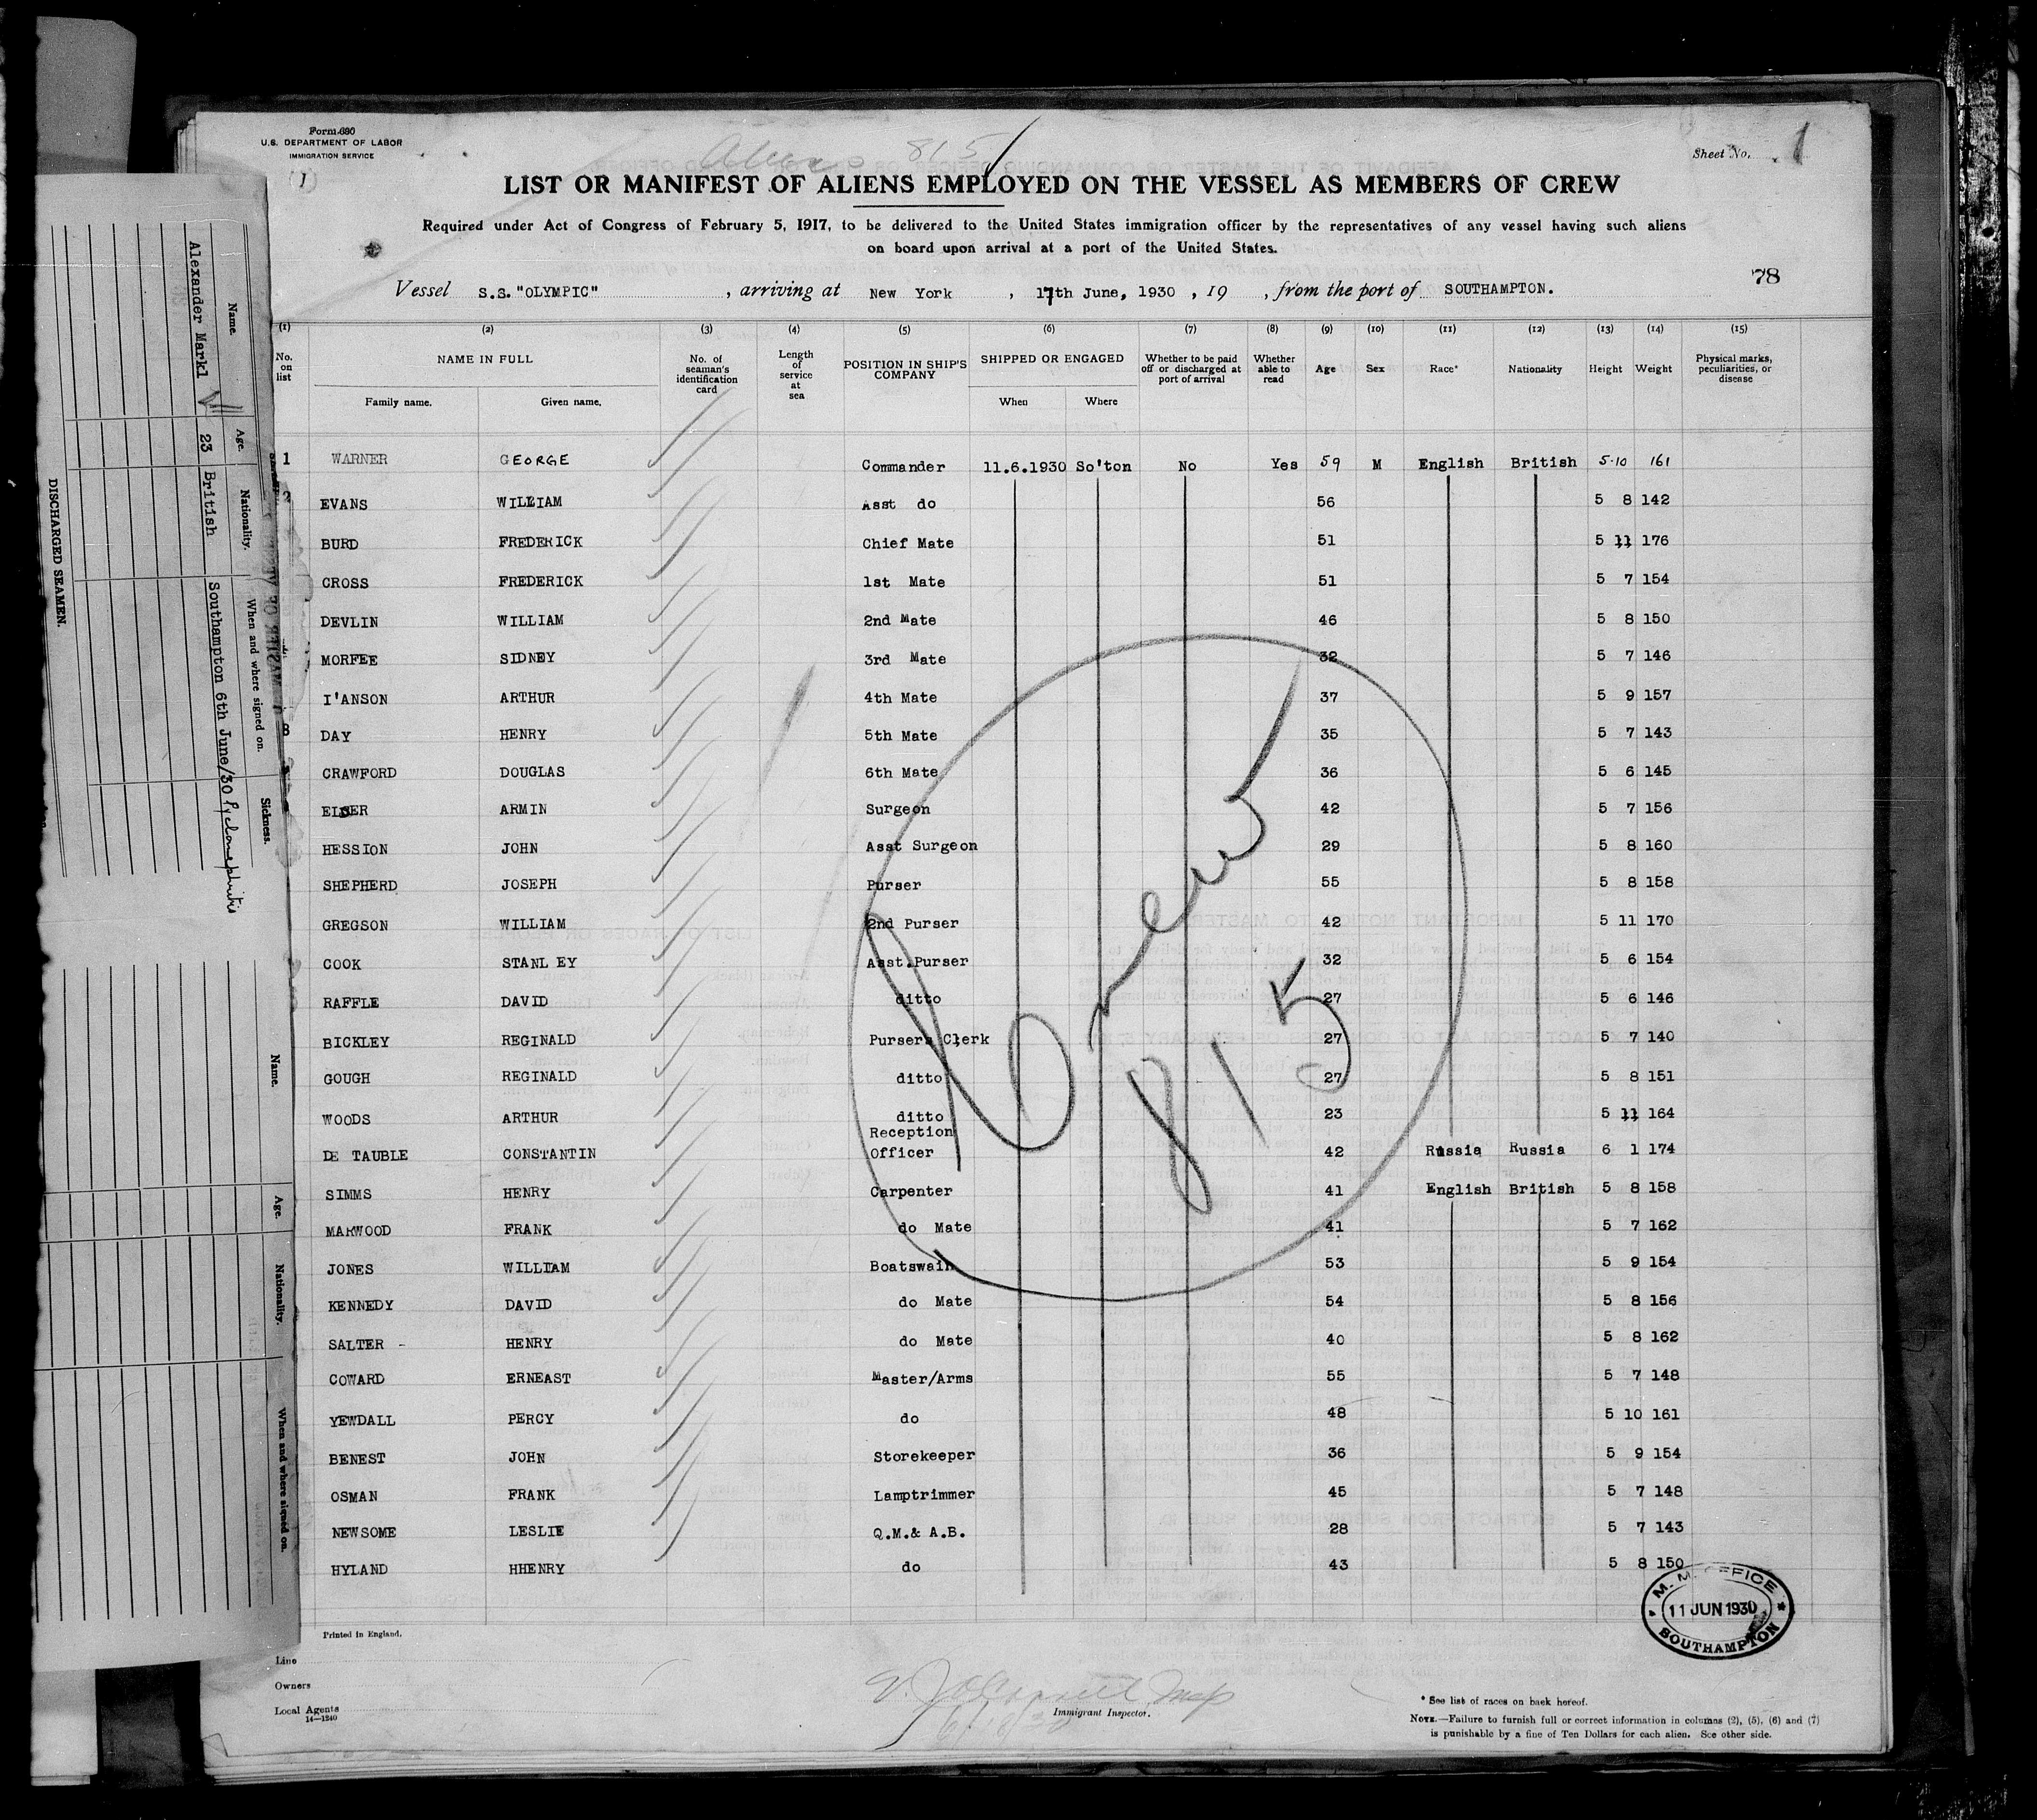 Form 680
U.S. DEPARTMENT OF LABOR
IMMIGRATION SERVICE
(1)
Aliens 815
Sheet No. 1
LIST OR MANIFEST OF ALIENS EMPLOYED ON THE VESSEL AS MEMBERS OF CREW
Required under Act of Congress of February 5, 1917, to be delivered to the United States immigration officer by the representatives of any vessel having such aliens
on board upon arrival at a port of the United States.
78
Vessel S.S. "OLYMPIC" , arriving at New York , 17th June, 1930 , 19 , from the port of SOUTHAMPTON.
(1) (2) (3) (4) (5) (6) (7) (8) (9) (10) (11) (12) (13) (14) (15)
No. on list NAME IN FULL Family name. Given name. No. of seaman's identification card Length of service at sea POSITION IN SHIP'S COMPANY SHIPPED OR ENGAGED When Where Whether to be paid off or discharged at port of arrival Whether able to read Age Sex Race* Nationality Height Weight Physical marks, peculiarities, or disease
1 WARNER GEORGE Commander 11.6.1930 So'ton No Yes 59 M English British 5-10 161
2 EVANS WILLIAM Asst do 56 5 8 142
BURD FREDERICK Chief Mate 51 5 11 176
CROSS FREDERICK 1st Mate 51 5 7 154
DEVLIN WILLIAM 2nd Mate 46 5 8 150
MORFEE SIDNEY 3rd Mate 32 5 7 146
I'ANSON ARTHUR 4th Mate 37 5 9 157
8 DAY HENRY 5th Mate 35 5 7 143
CRAWFORD DOUGLAS 6th Mate 36 5 6 145
ARMIN Surgeon 42 5 7 156
HESSION JOHN Asst Surgeon 29 5 8 160
SHEPHERD JOSEPH Purser 55 5 8 158
GREGSON WILLIAM 2nd Purser 42 5 11 170
COOK STANL EY Asst.Purser 32 5 6 154
RAFFLE DAVID ditto 27 5 6 146
BICKLEY REGINALD Pursers Clerk 27 5 7 140
GOUGH REGINALD ditto 27 5 8 151
WOODS ARTHUR ditto 23 5 11 164
DE TAUBLE CONSTANTIN Reception Officer 42 Russia Russia 6 1 174
SIMMS HENRY Carpenter 41 English British 5 8 158
MARWOOD FRANK do Mate 41 5 7 162
JONES WILLIAM Boatswain 53 5 9 154
KENNEDY DAVID do Mate 54 5 8 156
SALTER - HENRY do Mate 40 5 8 162
COWARD ERNEAST Master/Arms 55 5 7 148
YEWDALL PERCY do 48 5 10 161
BENEST JOHN Storekeeper 36 5 9 154
OSMAN FRANK Lamptrimmer 45 5 7 148
NEWSOME LESLIE Q.M.& A.B. 28 5 7 143
HYLAND HHENRY do 43 5 8 150
Crew
815
M. M. OFFICE
11 JUN 1930
SOUTHAMPTON
Printed in England.
Line
Owners
Local Agents
14—1240
Immigrant Inspector.
* See list of races on back hereof.
NOTE.—Failure to furnish full or correct information in columns (2), (5), (6) and (7)
is punishable by a fine of Ten Dollars for each alien. See other side.
DISCHARGED SEAMEN.
Name. Age. Nationality. When and where signed on. Sickness.
Alexander Markl 23 British Southampton 6th June/30 Pyelonephritis
Name. Age. Nationality. When and where signed on.